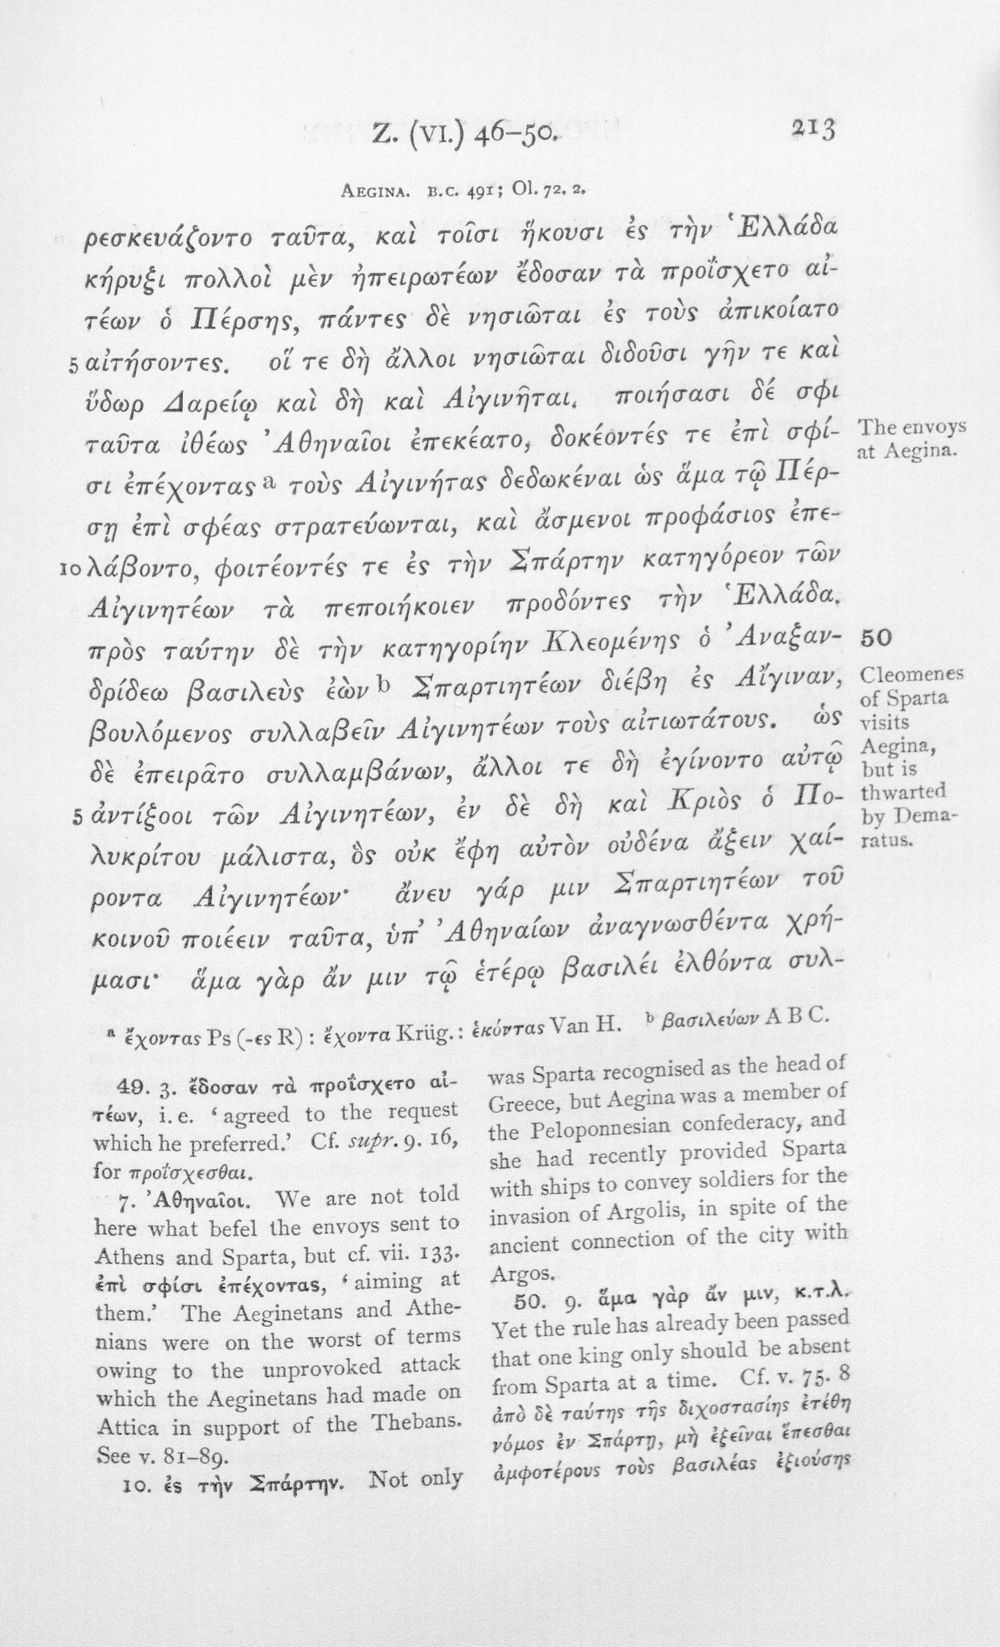 Z. (VI.) 46–50.
213
AEGINA. B.C. 491; Ol. 72. 2.
ρεσκευάζοντο ταῦτα, καὶ τοῖσι ἥκουσι ἐς τὴν Ἑλλάδα
κήρυξι πολλοὶ μὲν ἠπειρωτέων ἔδοσαν τὰ προΐσχετο αἰ-
τέων ὁ Πέρσης, πάντες δὲ νησιῶται ἐς τοὺς ἀπικοίατο
5 αἰτήσοντες. οἵ τε δὴ ἄλλοι νησιῶται διδοῦσι γῆν τε καὶ
ὕδωρ Δαρείῳ καὶ δὴ καὶ Αἰγινῆται. ποιήσασι δέ σφι
ταῦτα ἰθέως Ἀθηναῖοι ἐπεκέατο, δοκέοντές τε ἐπὶ σφί-
σι ἐπέχοντας a τοὺς Αἰγινήτας δεδωκέναι ὡς ἅμα τῷ Πέρ-
σῃ ἐπὶ σφέας στρατεύωνται, καὶ ἄσμενοι προφάσιος ἐπε-
10 λάβοντο, φοιτέοντές τε ἐς τὴν Σπάρτην κατηγόρεον τῶν
Αἰγινητέων τὰ πεποιήκοιεν προδόντες τὴν Ἑλλάδα.
πρὸς ταύτην δὲ τὴν κατηγορίην Κλεομένης ὁ Ἀναξαν-
δρίδεω βασιλεὺς ἐὼν b Σπαρτιητέων διέβη ἐς Αἴγιναν,
βουλόμενος συλλαβεῖν Αἰγινητέων τοὺς αἰτιωτάτους. ὡς
δὲ ἐπειρᾶτο συλλαμβάνων, ἄλλοι τε δὴ ἐγίνοντο αὐτῷ
5 ἀντίξοοι τῶν Αἰγινητέων, ἐν δὲ δὴ καὶ Κριὸς ὁ Πο-
λυκρίτου μάλιστα, ὃς οὐκ ἔφη αὐτὸν οὐδένα ἄξειν χαί-
ροντα Αἰγινητέων· ἄνευ γάρ μιν Σπαρτιητέων τοῦ
κοινοῦ ποιέειν ταῦτα, ὑπ' Ἀθηναίων ἀναγνωσθέντα χρή-
μασι· ἅμα γὰρ ἄν μιν τῷ ἑτέρῳ βασιλέι ἐλθόντα συλ-
The envoys
at Aegina.
50
Cleomenes
of Sparta
visits
Aegina,
but is
thwarted
by Dema-
ratus.
a ἔχοντας Ps (-ες R) : ἔχοντα Krüg. : ἑκόντας Van H. b βασιλεύων A B C.
49. 3. ἔδοσαν τὰ προΐσχετο αἰ-
τέων, i. e. ‘agreed to the request
which he preferred.’ Cf. supr. 9. 16,
for προΐσχεσθαι.
7. Ἀθηναῖοι. We are not told
here what befel the envoys sent to
Athens and Sparta, but cf. vii. 133.
ἐπὶ σφίσι ἐπέχοντας, ‘aiming at
them.’ The Aeginetans and Athe-
nians were on the worst of terms
owing to the unprovoked attack
which the Aeginetans had made on
Attica in support of the Thebans.
See v. 81–89.
10. ἐς τὴν Σπάρτην. Not only
was Sparta recognised as the head of
Greece, but Aegina was a member of
the Peloponnesian confederacy, and
she had recently provided Sparta
with ships to convey soldiers for the
invasion of Argolis, in spite of the
ancient connection of the city with
Argos.
50. 9. ἅμα γὰρ ἄν μιν, κ.τ.λ.
Yet the rule has already been passed
that one king only should be absent
from Sparta at a time. Cf. v. 75. 8
ἀπὸ δὲ ταύτης τῆς διχοστασίης ἐτέθη
νόμος ἐν Σπάρτῃ, μὴ ἐξεῖναι ἕπεσθαι
ἀμφοτέρους τοὺς βασιλέας ἐξιούσης